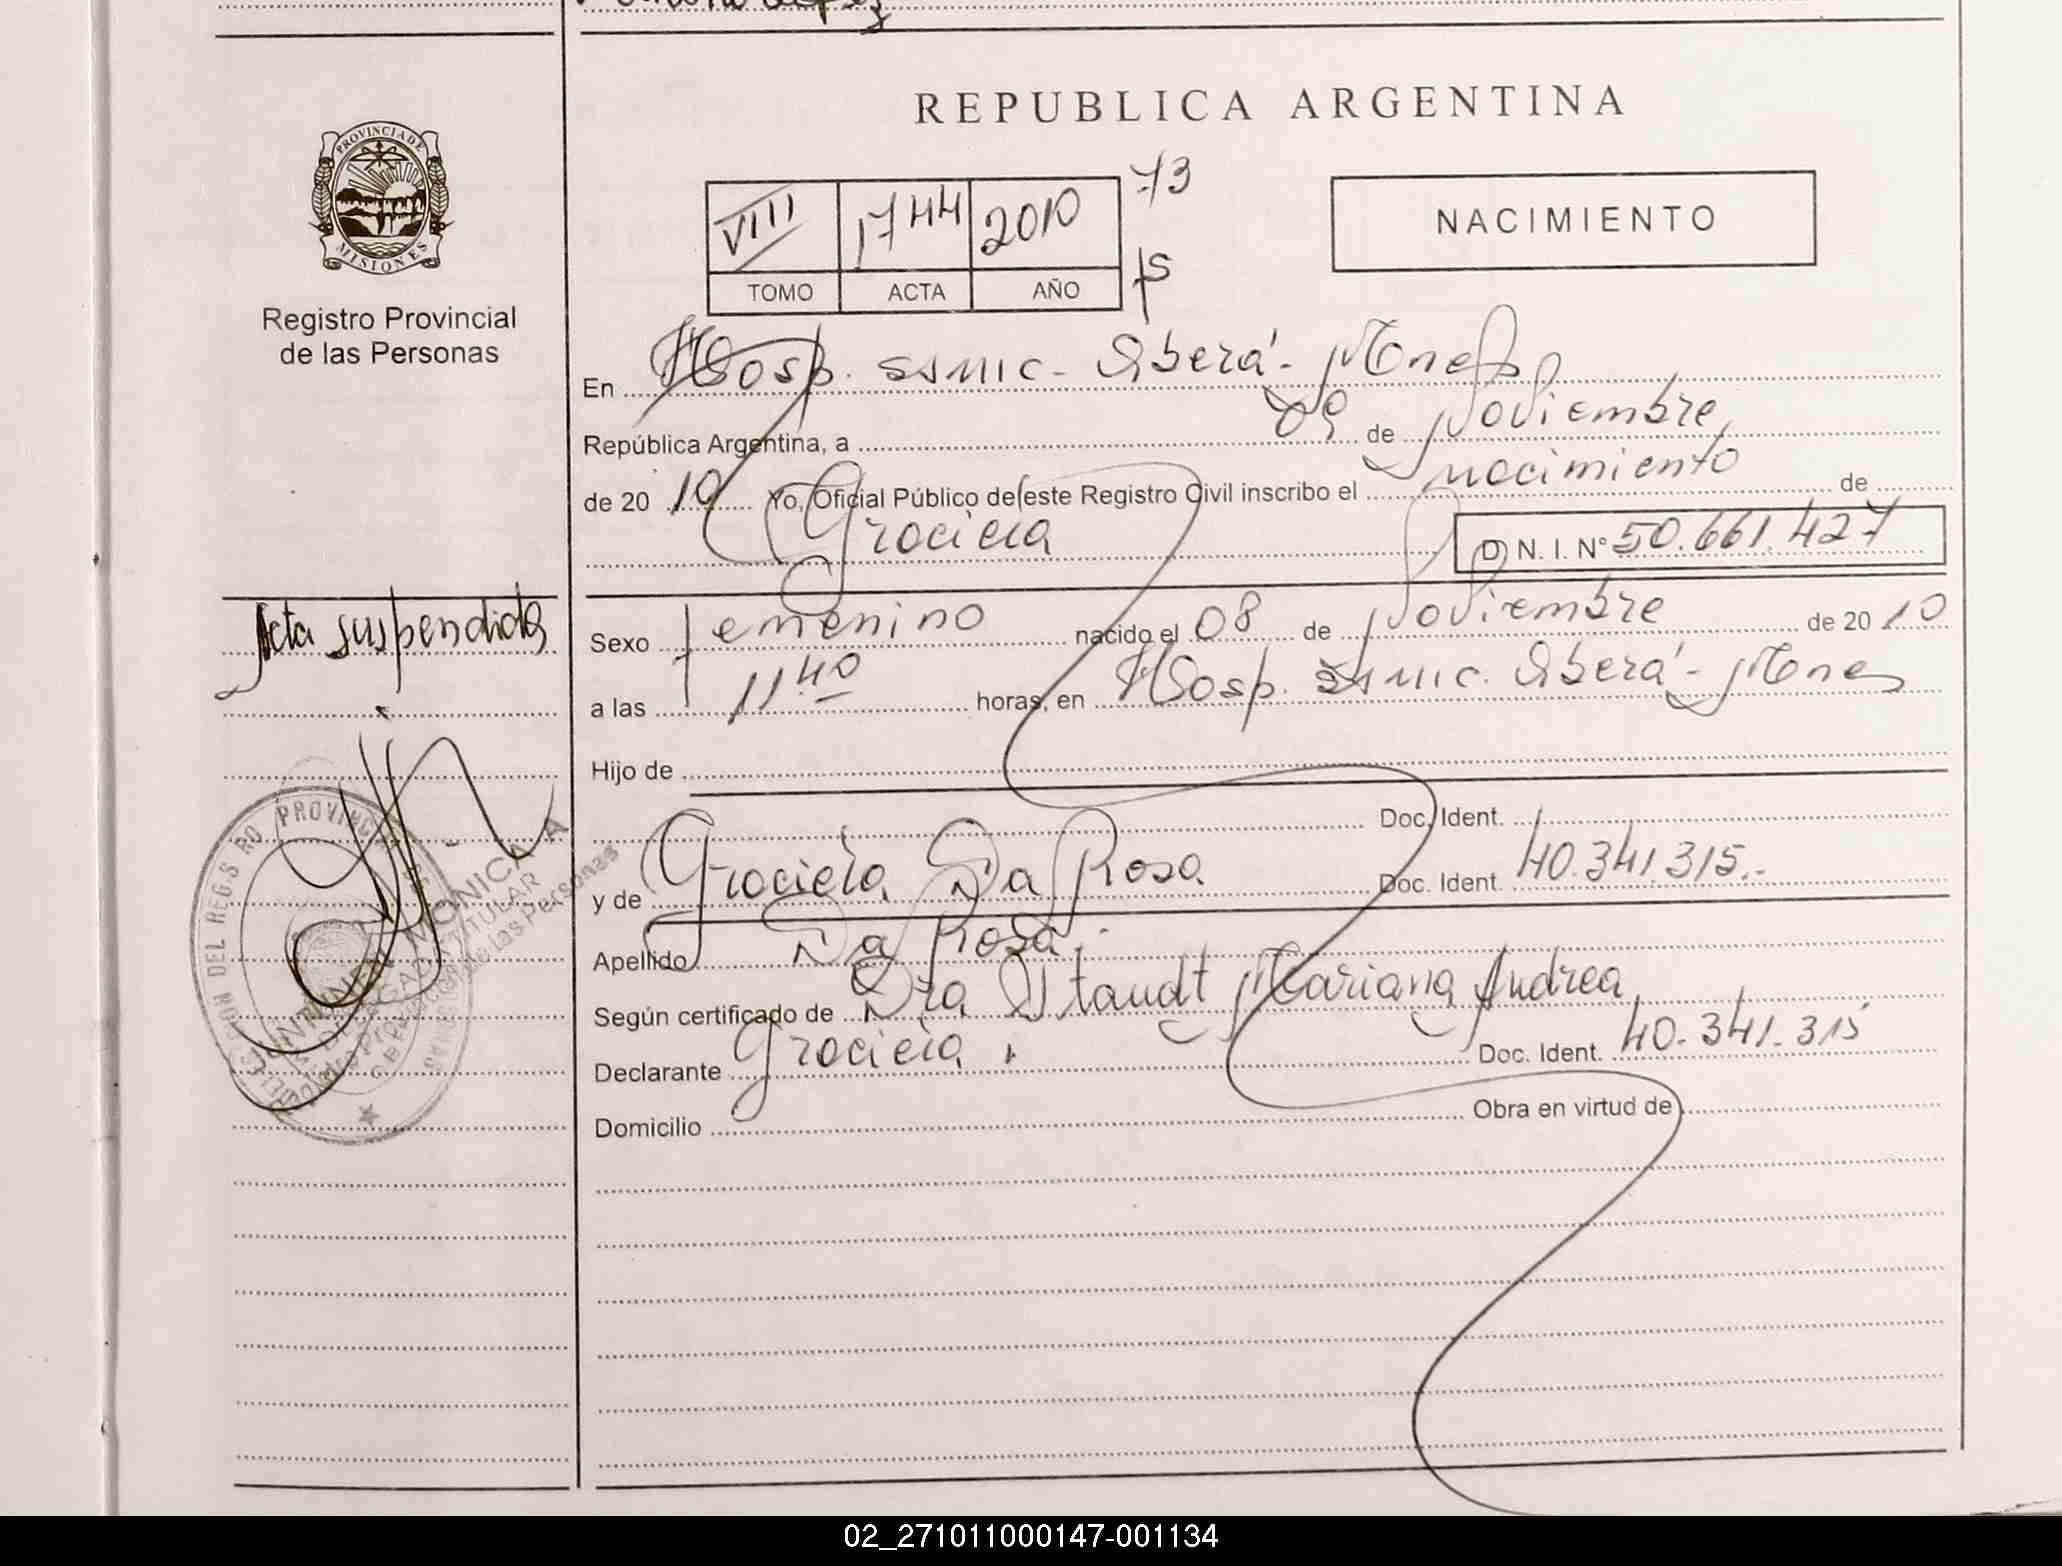 REPUBLICA ARGENTINA
PROVINCIA DE
MISIONES
Registro Provincial
de las Personas
VIII 1744 2010
TOMO ACTA AÑO
73
NACIMIENTO
En Hosp. SSMIC - Oberá - Mnes
República Argentina, a 09 de Noviembre
de 2010 Yo, Oficial Público de este Registro Civil inscribo el nacimiento de
Graciela
D. N. I. N° 50.661.427
Acta suspendida
Sexo femenino nacido el 08 de Noviembre de 2010
a las 11 40 horas, en Hosp. SSMIC. Oberá - Mnes
Hijo de
Doc. Ident.
y de Graciela Da Rosa Doc. Ident. 40.341.315
Apellido Da Rosa
Según certificado de Dra Staudt Mariana Andrea
Declarante Graciela Doc. Ident. 40.341.315
Domicilio Obra en virtud de
MONICA A
TITULAR
de las Personas
02_271011000147-001134